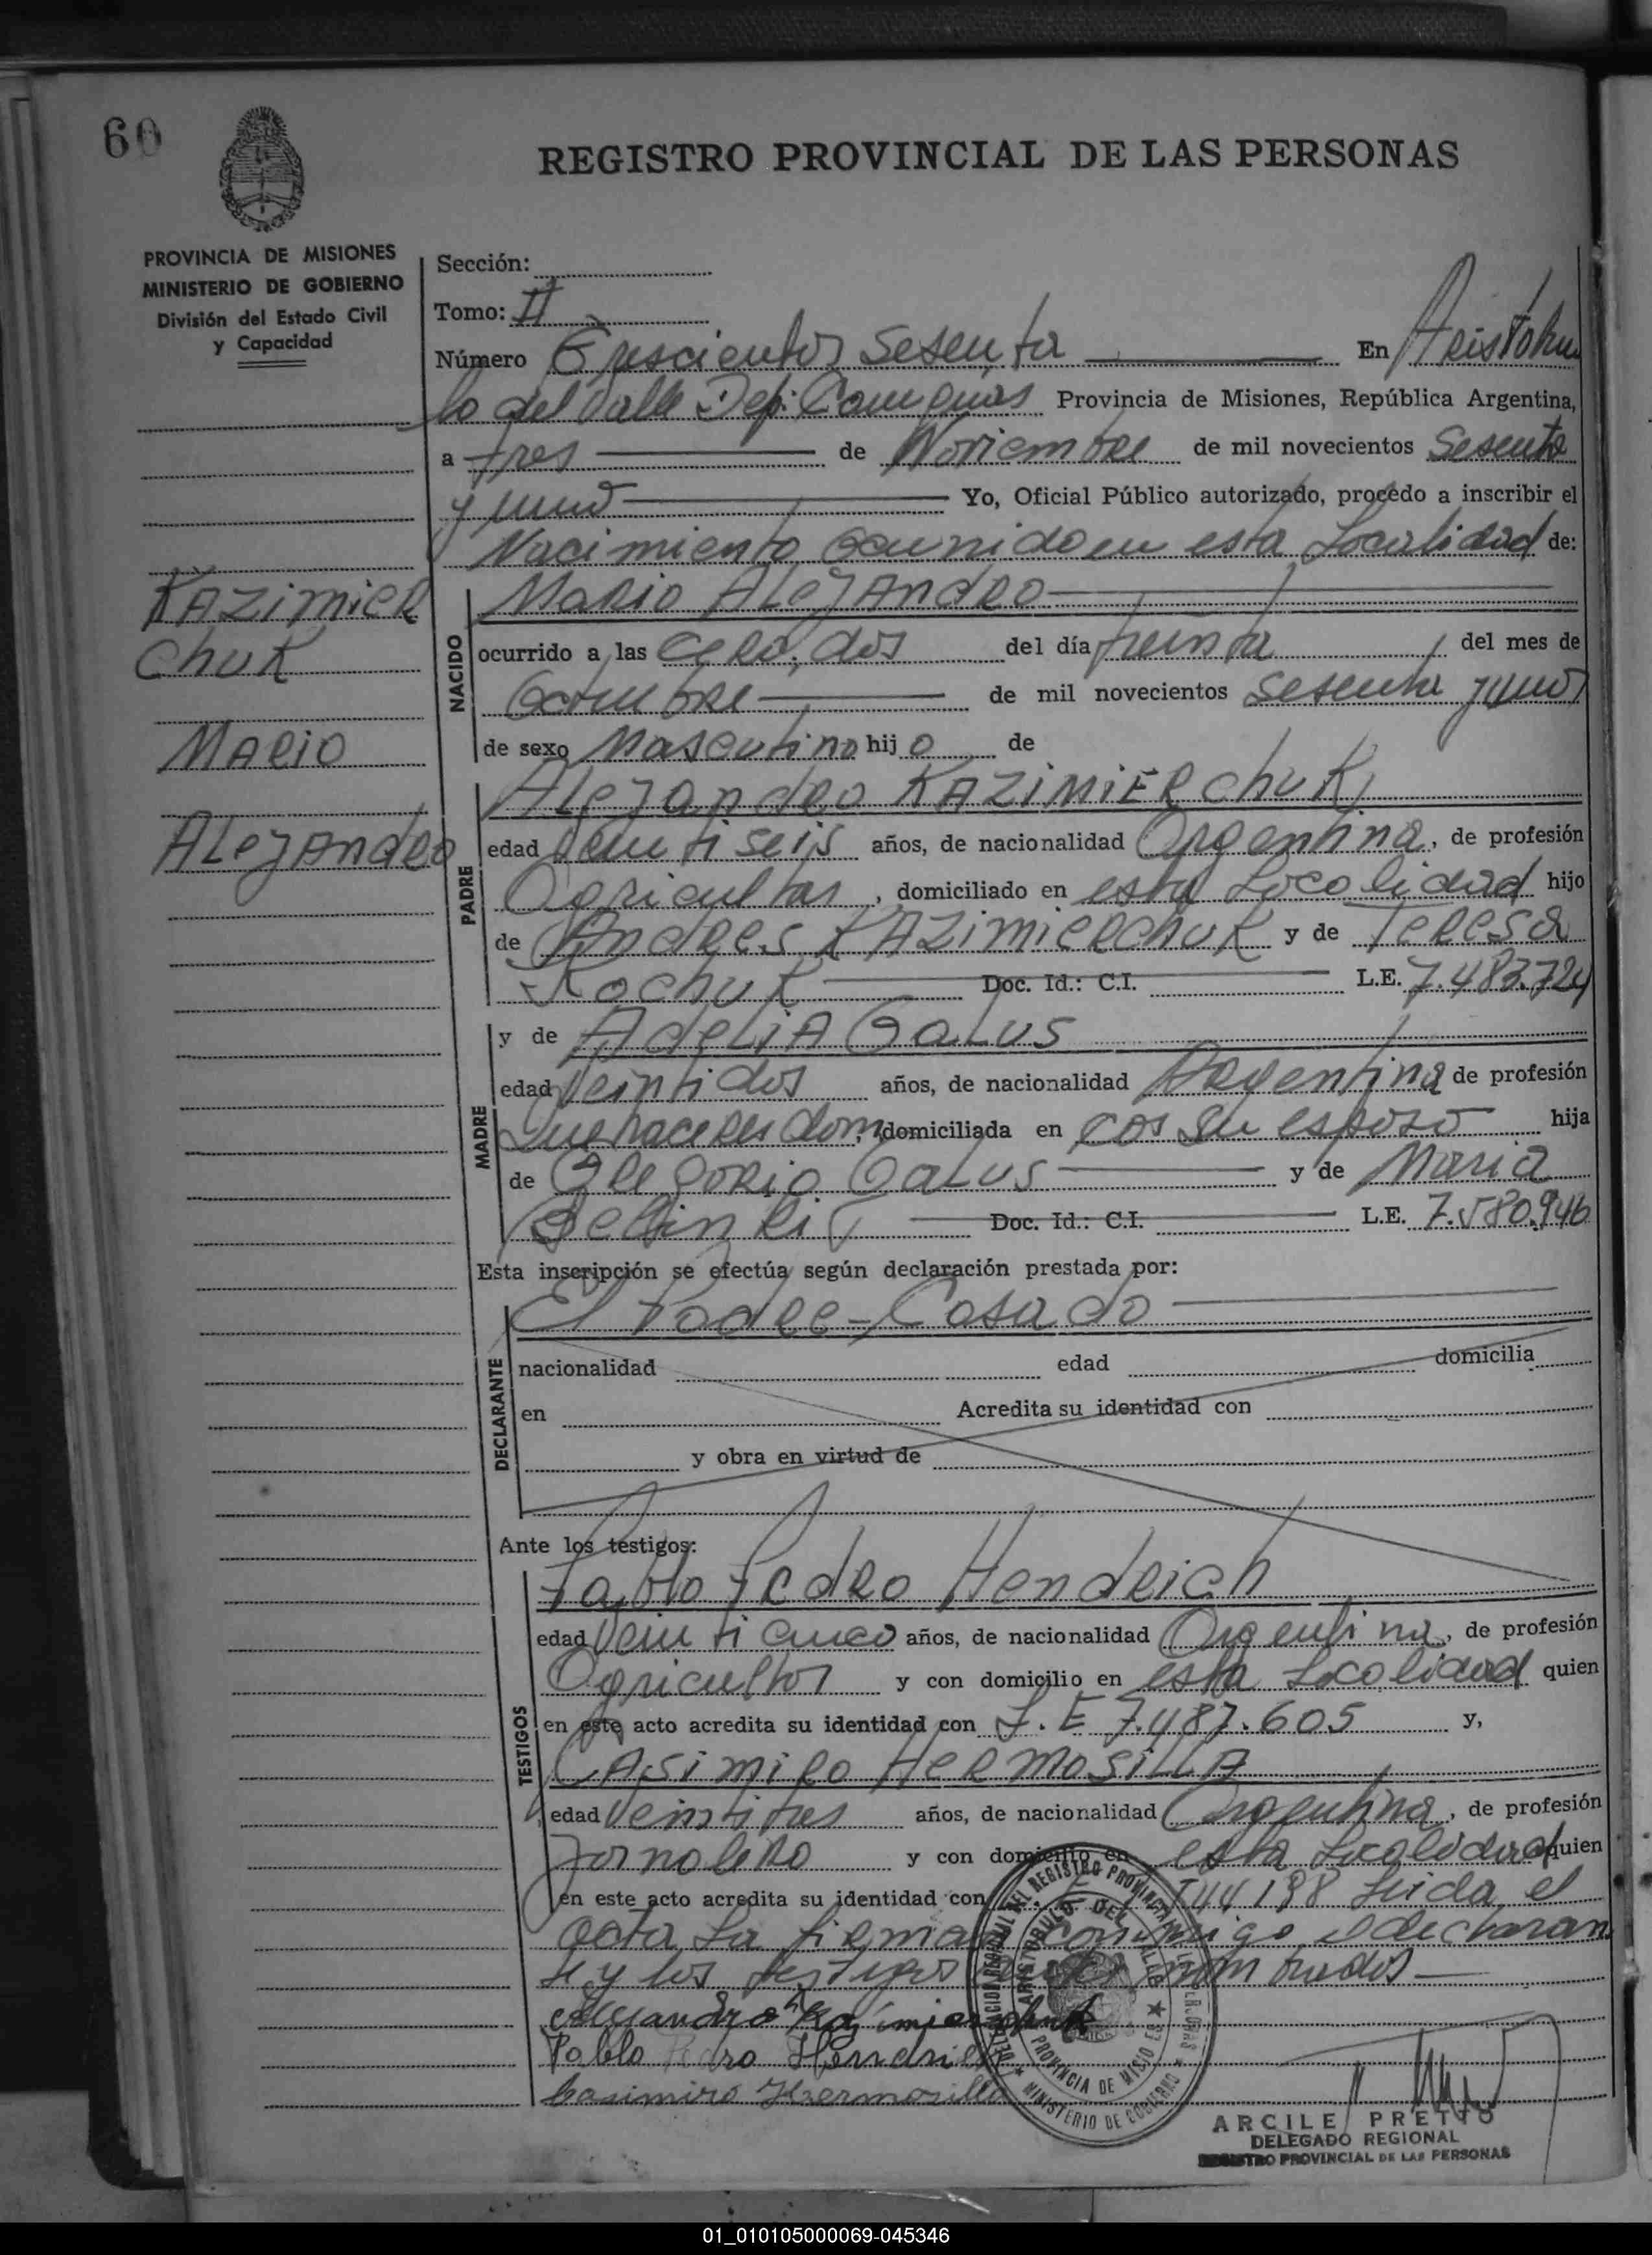 60
REGISTRO PROVINCIAL DE LAS PERSONAS
PROVINCIA DE MISIONES
MINISTERIO DE GOBIERNO
División del Estado Civil
y Capacidad
Sección:
Tomo: II
Número Trescientos Sesenta En Aristobu
lo del Valle Dep: Cainguas Provincia de Misiones, República Argentina,
a tres de Noviembre de mil novecientos Sesenta
y uno Yo, Oficial Público autorizado, procedo a inscribir el
Nacimiento Ocurrido en esta Localidad de:
KAzimieR
chuK
Mario
Alejandro
NACIDO
Mario Alejandro
ocurrido a las cero, dos del día treinta del mes de
Octubre de mil novecientos Sesenta y uno
de sexo Masculino hijo de
PADRE
Alejandro KAZIMIERchuK
edad Veintiseis años, de nacionalidad Argentina, de profesión
Agricultor, domiciliado en esta Localidad hijo
de Andres KAZimierchuK y de Teresa
Kochuk Doc. Id.: C.I. L.E. 7.483.724
MADRE
y de Adelia Galus
edad Veintidos años, de nacionalidad Argentina de profesión
Quehaceres dom, domiciliada en cos su esposo hija
de Gregorio Galus y de Maria
Doc. Id.: C.I. L.E. 7.580.946
Esta inscripción se efectúa según declaración prestada por:
DECLARANTE
El Padre - Casado
nacionalidad edad domicilia
en Acredita su identidad con
y obra en virtud de
Ante los testigos:
TESTIGOS
Pablo Pedro Hendrich
edad Veinticinco años, de nacionalidad Argentina, de profesión
Agricultor y con domicilio en esta Localidad quien
en este acto acredita su identidad con L.E 7.487.605 y,
CAsimiro HermosiLLA
edad Veintitres años, de nacionalidad Argentina, de profesión
Jornalero y con domicilio en esta Localidad quien
en este acto acredita su identidad con 544198 Leida el
acta La firman conmigo el declaran
te y los testigos nombrados
Alejandro Kazimierchuk
Pablo Pedro Hendrich
Casimiro Hermosilla
DELEGACION REGIONAL DEL REGISTRO PROVINCIAL DE LAS PERSONAS
ARISTOBULO DEL VALLE
PROVINCIA DE MISIONES
MINISTERIO DE GOBIERNO
ARCILE PRETTO
DELEGADO REGIONAL
REGISTRO PROVINCIAL DE LAS PERSONAS
01_010105000069-045346